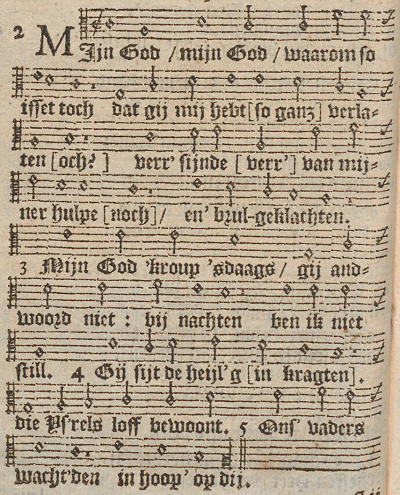 2 MIjn God / mijn God / waarom so
isset toch dat gij mij hebt [so ganz] verla-
ten [och?] verr' sijnde [verr'] van mij-
ner hulpe [noch] / en' brul-geklachten.
3 Mijn God 'kroup 'sdaags / gij and-
woord niet : bij nachten ben ik niet
still. 4 Gij sijt de heijl'g [in kragten].
die Ps'rels loff bewoont. 5 Ons' vaders
wacht'den in hoop' op dij.